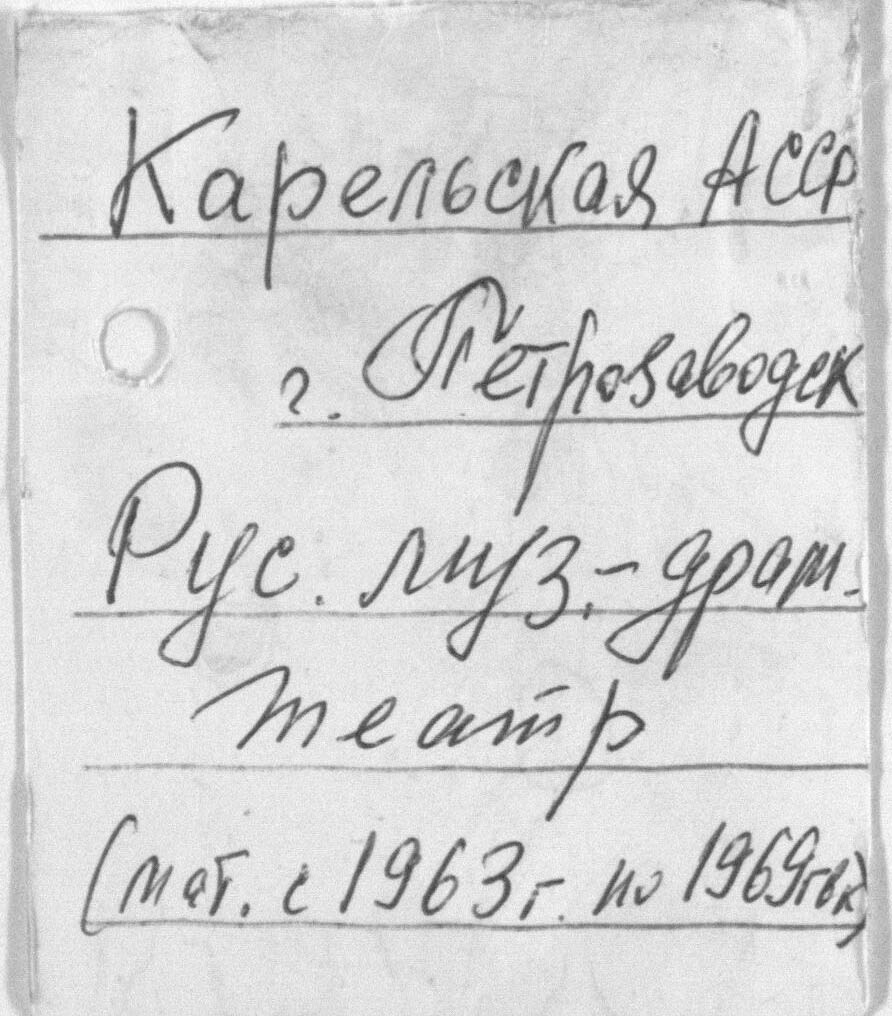 Карельская АССР
г. Петрозаводск
Рус. муз.-драм.
театр
(мат. с 1963 г. по 1969